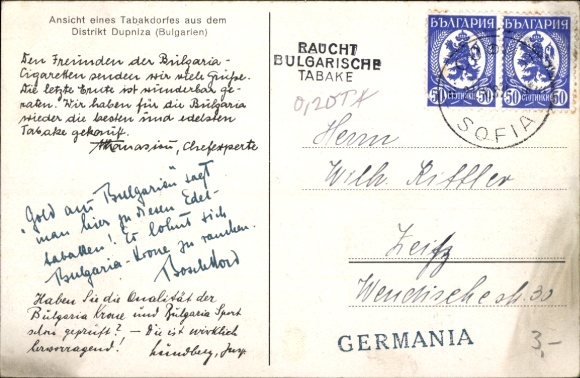 Ansicht eines Tabakdorfes aus dem
Distrikt Dupniza (Bulgarien)
Den Freunden der Bulgaria-
Cigaretten senden wir viele Grüße.
Die letzte Ernte ist wunderbar ge-
raten. Wir haben für die Bulgaria
wieder die besten und edelsten
Tabake gekauft.
Athanasiu, Chefexperte
"Gold aus Bulgarien" sagt
man hier zu diesen Edel-
tabaken! Es lohnt sich
Bulgaria-Krone zu rauchen.
Haben Sie die Qualität der
Bulgaria Krone und Bulgaria Sport
schon geprüft? – Die ist wirklich
hervorragend! Lundberg,
RAUCHT
BULGARISCHE
TABAKE
БЪЛГАРИЯ БЪЛГАРИЯ
50 СТОТИНКИ 50 50 СТОТИНКИ 50
SOFIA
Herrn
Wilh. Kittler
Zeitz
Wendischestr. 30
GERMANIA
3,-